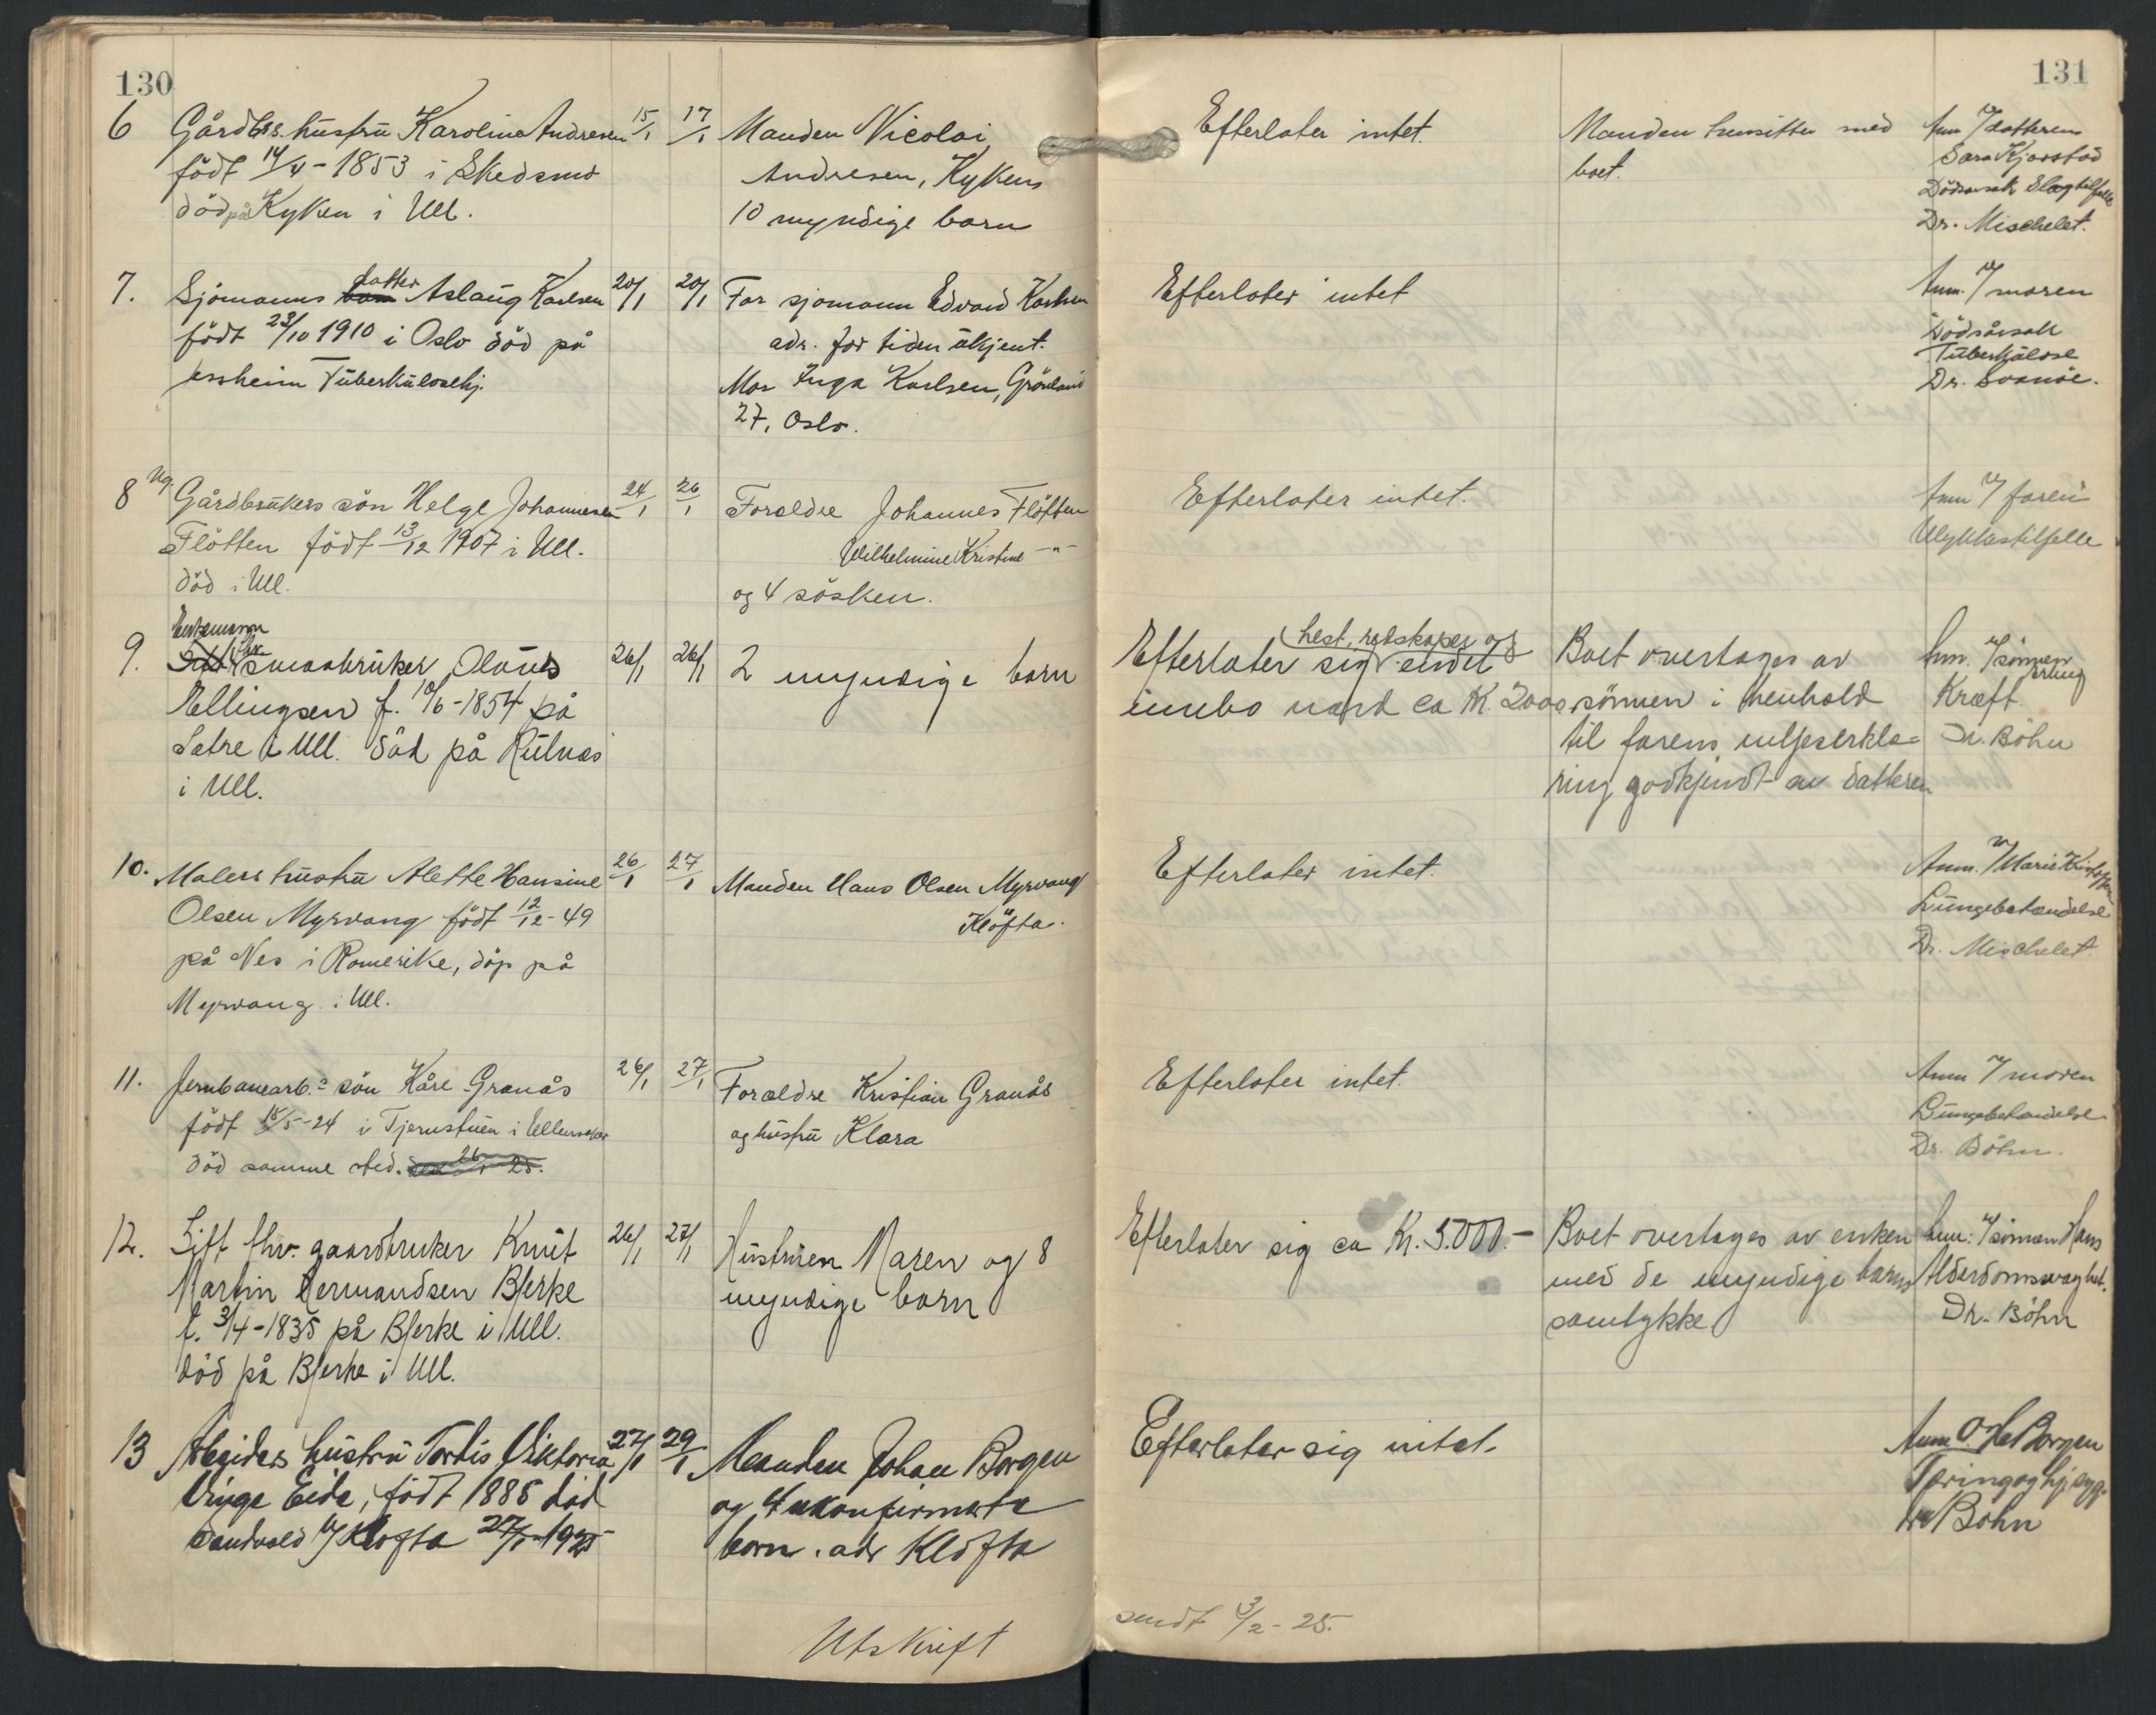 130
6 Gårdbrs. hustru Karoline Andresen 15/1 17/1 Manden Nicolai
født 14/4 - 1853 i Skedsmo Andresen, Kyken
död på Kyken i Ull. 10 myndige barn
7. Sjömanns barn datter Aslaug Karlsen 20/1 20/1 Far sjomann Edvard Karlsen
födt 23/10 1910 i Oslo död på adr. for tiden ukjent.
Jessheim Tuberkulosehj. Mor Inga Karlsen, Grönland
27, Oslo.
8 Ug. Gårdbrukers sön Helge Johannesen 24/1 26/1 Foreldre Johannes Flötten
Flötten födt 13/12 1907 i Ull. Wilhelmine Kristine -"-
död i Ull. og 4 sösken.
Enkemann
9. smaabruker Olaus 26/1 26/1 2 myndige barn
Ellingsen f. 10/6 - 1854 på
Sætre i Ull. död på Kulnæs
i Ull.
10. Malers hustru Alette Hansine 26/1 27/1 Manden Hans Olsen Myrvang
Olsen Myrvang födt 12/12 - 49 Klöfta.
på Nes i Romerike, döp på
Myrvang i Ull.
11. Jernbanearb.s sön Kåre Granås 26/1 27/1 Foreldre Kristian Granås
födt 15/5 - 24 i Tjernstuen i Ullensaker og hustru Klara
död samme sted. den 26/1 25.
12. Gift fhv. gaardbruker Knut 26/1 27/1 Hustruen Maren og 8
Martin Hermandsen Bjerke myndige barn
f. 3/4 - 1835 på Bjerke i Ull.
död på Bjerke i Ull.
13 Arbeiders hustru Tordis Viktoria 27/1 29/1 Manden Johan Borgen
Unge Eide, födt 1888 död og 4 ukonfirmerte
Sandvold v/ Klöfta 27/1 - 1925 born. adr Klöfta
Utskrift
131
Efterlater intet. Manden hensitter med Anm v/ datteren
boet. Sara Kjorstad
Dödsårsak Slagtilfelle
Dr. Mischelet.
Efterlater intet Anm. v/ moren
Dödsårsak
Tuberkulose
Dr. Svanöe.
Efterlater intet. Anm v/ faren
Ulykkestilfelle
hest, redskaper og
Efterlater sig endel Boet overtages av Anm. v/ sönnen Erling
innbo værd ca Kr. 2000. sönnen i henhold Kræft
til farens viljeserklæ= Dr. Böhn
ring godkjendt av datteren
Efterlater intet. Anm. v/ Marie Kristoffersen
Lungebetændelse
Dr. Mischelet.
Efterlater intet. Anm v/ moren
Lungebetændelse
Dr. Böhn.
Efterlater sig ca Kr. 5.000.- Boet overtages av enken Anm: v/ sönnen Hans
med de myndige barns Alderdomssvaghet.
samtykke Dr. Böhn
Efterlater sig intet. Anm O. H. Borgen
Tæring og hj.
Dr Bohn
sendt 3/2 - 25.